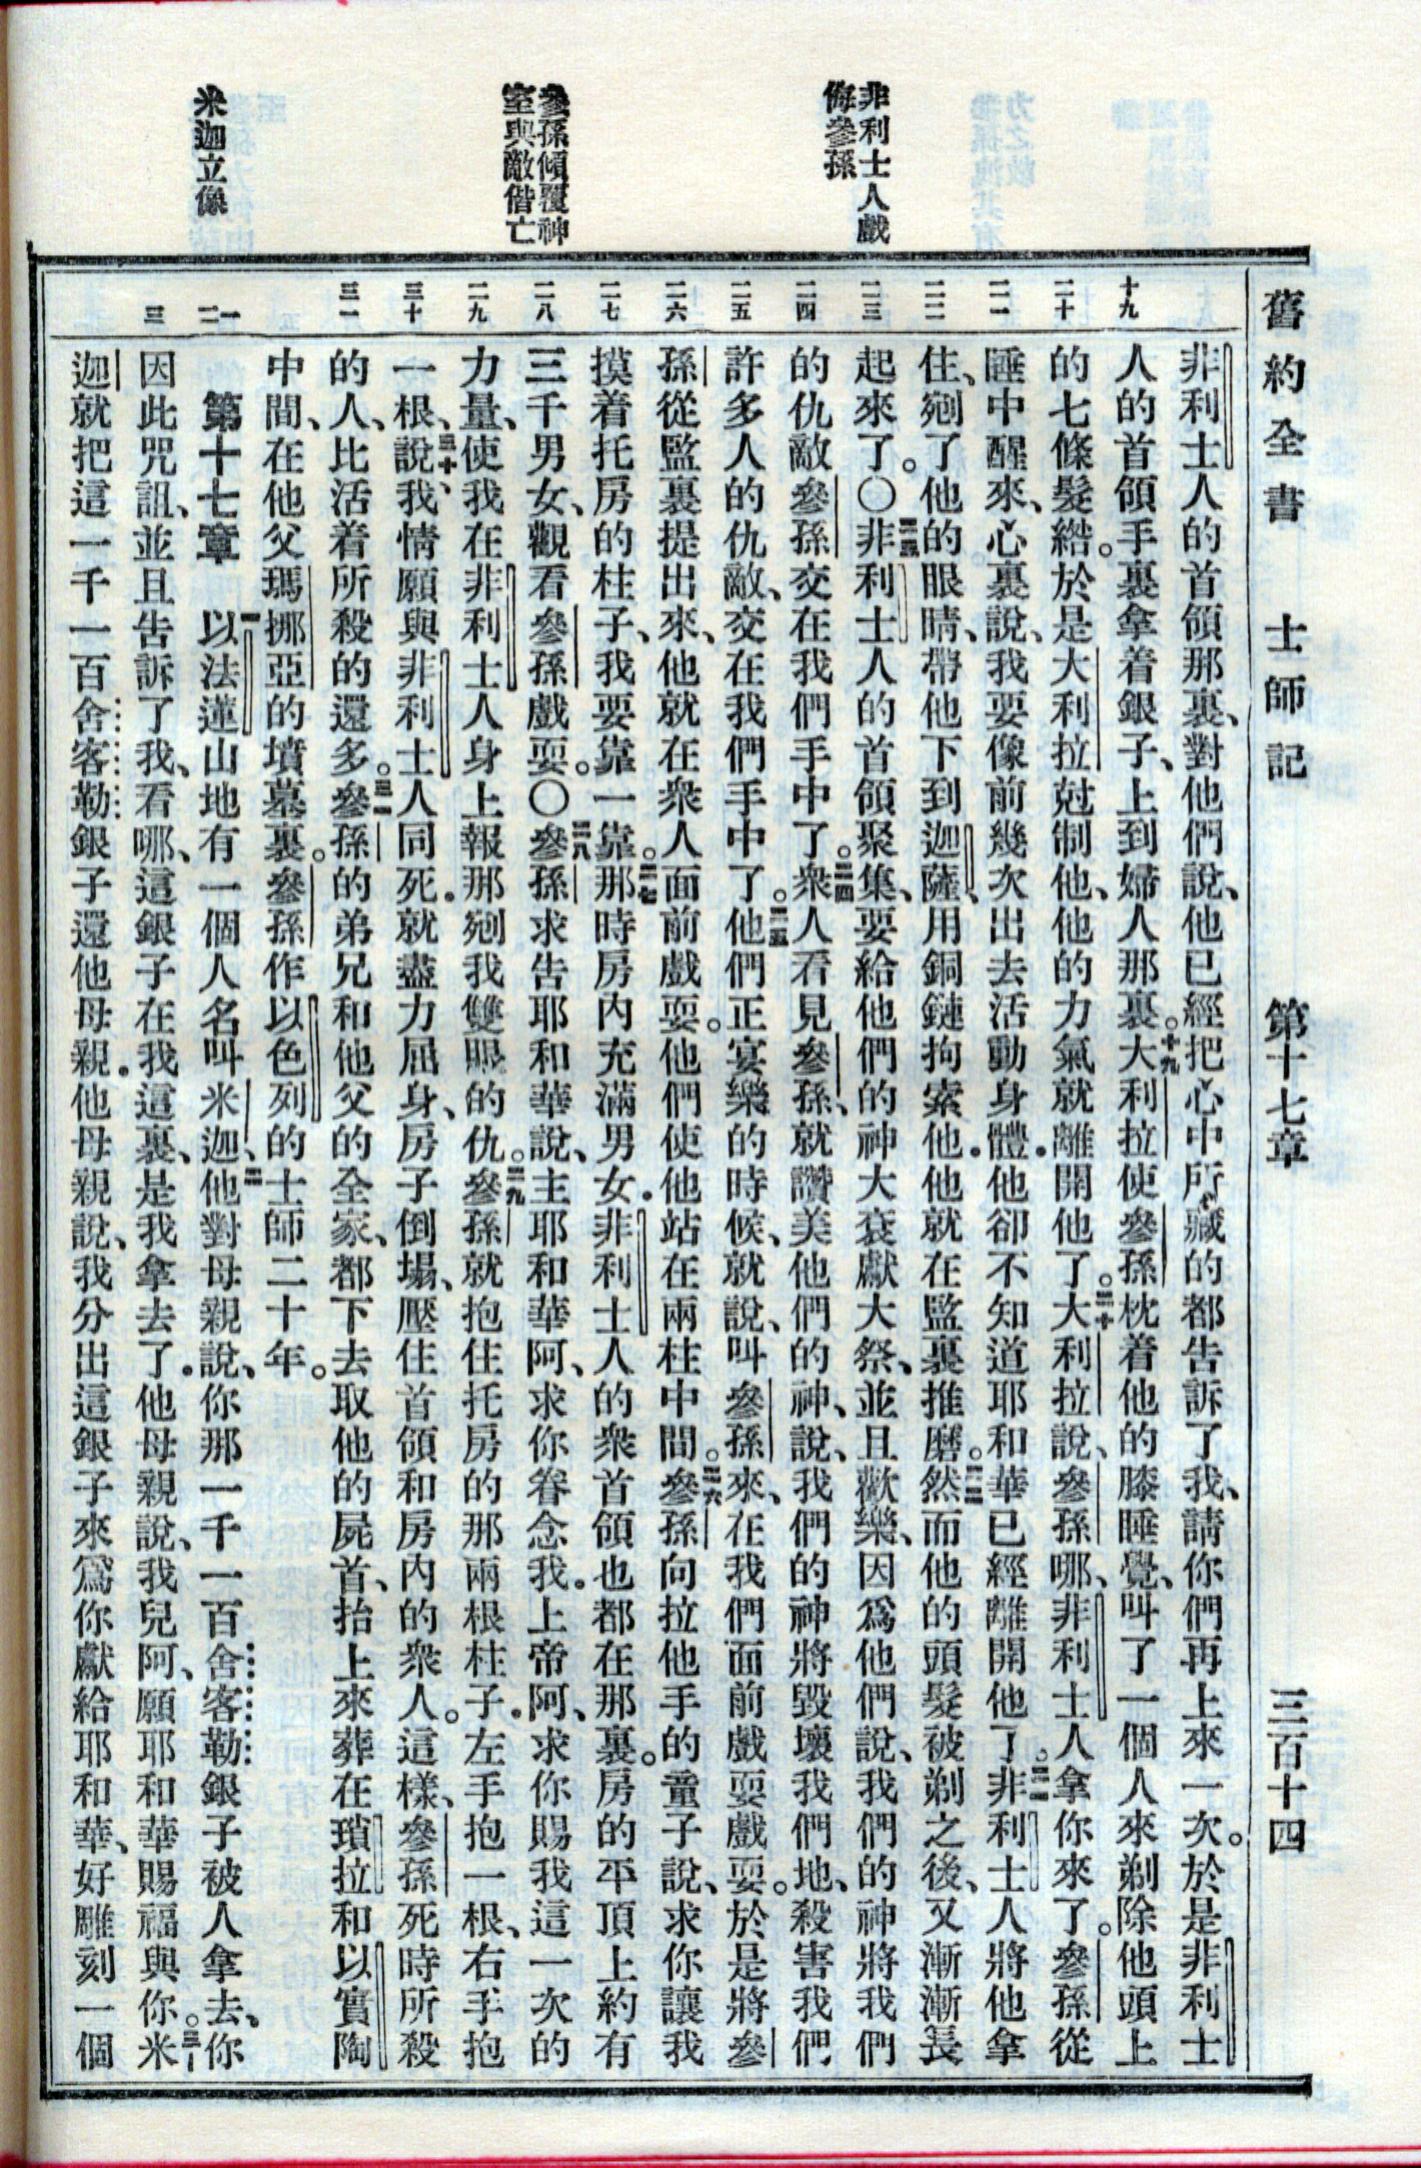 舊約全書　士師記　第十七章　三百十四
非利士人戲
侮參孫
參孫傾覆神
室與敵偕亡
米迦立像
十九
二十
二一
二二
二三
二四
二五
二六
二七
二八
二九
三十
三一
一
二
三
非利士人的首領那裏、對他們說、他已經把心中所藏的都告訴了我、請你們再上來一次。於是非利士
人的首領手裏拿着銀子、上到婦人那裏。十九大利拉使參孫枕着他的膝睡覺、叫了一個人來剃除他頭上
的七條髮綹。於是大利拉尅制他、他的力氣就離開他了。二十大利拉說、參孫哪、非利士人拿你來了。參孫從
睡中醒來、心裏說、我要像前幾次出去活動身體．他卻不知道耶和華已經離開他了。二一非利士人將他拿
住、剜了他的眼睛、帶他下到迦薩、用銅鏈拘索他．他就在監裏推磨。二二然而他的頭髮被剃之後、又漸漸長
起來了。〇二三非利士人的首領聚集、要給他們的神大袞獻大祭、並且歡樂、因爲他們說、我們的神將我們
的仇敵參孫交在我們手中了。二四衆人看見參孫、就讚美他們的神、說、我們的神將毀壞我們地、殺害我們
許多人的仇敵、交在我們手中了。二五他們正宴樂的時候、就說、叫參孫來、在我們面前戲耍戲耍。於是將參
孫從監裏提出來、他就在衆人面前戲耍。他們使他站在兩柱中間。二六參孫向拉他手的童子說、求你讓我
摸着托房的柱子、我要靠一靠。二七那時房內充滿男女．非利士人的衆首領也都在那裏。房的平頂上約有
三千男女、觀看參孫戲耍。〇二八參孫求告耶和華說、主耶和華阿、求你眷念我．上帝阿、求你賜我這一次的
力量、使我在非利士人身上報那剜我雙眼的仇。二九參孫就抱住托房的那兩根柱子．左手抱一根、右手抱
一根、三十說、我情願與非利士人同死．就盡力屈身、房子倒塌、壓住首領和房內的衆人。這樣、參孫死時所殺
的人、比活着所殺的還多。三一參孫的弟兄和他父的全家、都下去取他的屍首、抬上來葬在瑣拉和以實陶
中間、在他父瑪挪亞的墳墓裏。參孫作以色列的士師二十年。
第十七章　一以法蓮山地有一個人名叫米迦、二他對母親說、你那一千一百舍客勒銀子被人拿去、你
因此咒詛、並且告訴了我、看哪、這銀子在我這裏、是我拿去了．他母親說、我兒阿、願耶和華賜福與你。三米
迦就把這一千一百舍客勒銀子還他母親．他母親說、我分出這銀子來爲你獻給耶和華、好雕刻一個